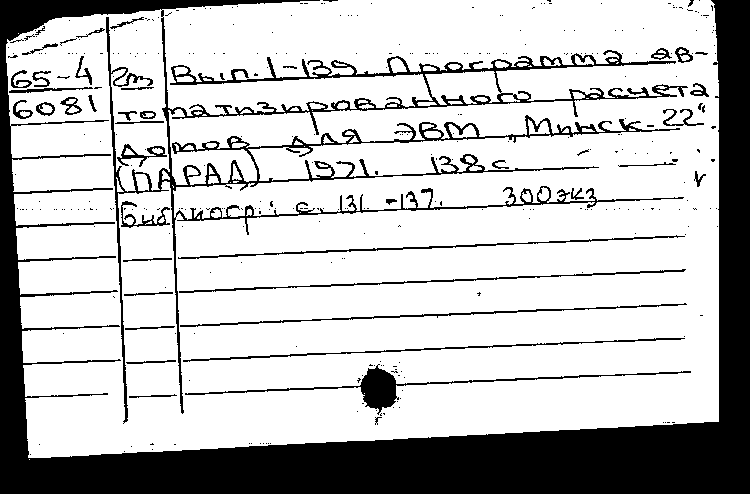 65-4 2т Вып. 1-139. Программа ав-
6081 томатизированного расчета
домов для ЭВМ „Минск-22“.
(ПАРАД). 1971. 138 с.
Библиогр.: с. 131-137. 300 экз